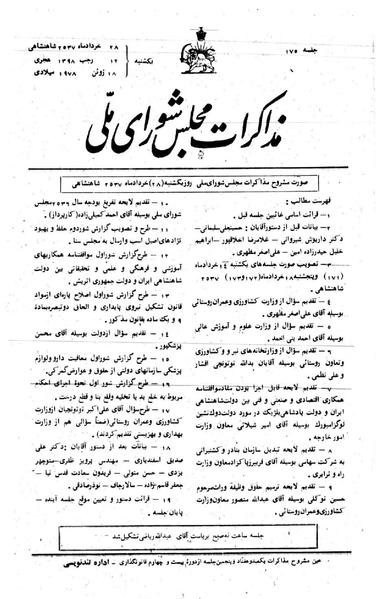 جلسه ۱۷۵
یکشنبه
۲۸ خردادماه ۲۵۳۷ شاهنشاهی
۱۲ رجب ۱۳۹۸ هجری
۱۸ ژوئن ۱۹۷۸ میلادی
مذاکرات مجلس شورای ملی
صورت مشروح مذاکرات مجلس شورای ملی روز یکشنبه (۲۸) خرداد ماه ۲۵۳۷ شاهنشاهی
فهرست مطالب:
۱ - قرائت اسامی غائبین جلسه قبل.
۲ - بیانات قبل از دستور آقایان: حسینعلی سلیمانی -
دکتر داریوش شیروانی - غلامرضا اخلاقپور - ابراهیم
خلیل حیدرزاده امین - علی اصغر مظهری.
۳ - تصویب صورت جلسه‌های یکشنبه ۱۴ خردادماه
(۱۷۱) و پنجشنبه ۱۸ خردادماه (۱۷۲ و ۱۷۳) ۲۵۳۷
۴ - تقدیم سؤال از وزارت کشاورزی و عمران روستائی
بوسیله آقای علی اصغر مظهری.
۵ - تقدیم سؤال از وزارت علوم و آموزش عالی
بوسیله آقای احمد بنی احمد.
۶ - تقدیم سؤال از وزارتخانه‌های نیرو و کشاورزی
وتعاون روستائی بوسیله آقایان یدالله نوتونچی افشار
و علی نظمی.
۷ - تقدیم لایحه قابل اجرا بودن مفاد موافقتنامه
همکاری اقتصادی و صنعتی و فنی بین دولت شاهنشاهی
ایران و دولت پادشاهی بلژیک در مورد دولت دوک‌نشین
لوگزامبورگ بوسیله آقای امیر شیلاتی معاون وزارت
امور خارجه.
۸ - تقدیم لایحه تبدیل سازمان بنادر و کشتیرانی
به شرکت سهامی بوسیله آقای فریبرز پاکزاد معاون وزارت
راه و ترابری.
۹ - تقدیم لایحه ترمیم حقوق وظیفه وراث مرحوم
حسن توکلی بوسیله آقای عبدالله منصور معاون وزارت
کشاورزی و عمران روستائی
۱۰ - تقدیم لایحه تفریغ بودجه سال ۲۵۳۶ مجلس
شورای ملی بوسیله آقای احمد کمیلی‌زاده (کارپرداز).
۱۱ - طرح و تصویب گزارش شور دوم حفظ و بهبود
نژادهای اصیل اسب و ارسال به مجلس سنا.
۱۲ - طرح گزارش شور اول موافقتنامه همکاریهای
آموزشی و فرهنگی و علمی و تحقیقاتی بین دولت
شاهنشاهی ایران و دولت جمهوری اتریش.
۱۳ - طرح گزارش شور اول اصلاح پاره‌ای از مواد
قانون تشکیل نیروی پایداری و الحاق دو تبصره بماده
۹ و یک ماده بقانون مذکور.
۱۴ - تقدیم سؤال از دولت بوسیله آقای محسن
پزشکپور.
۱۵ - طرح گزارش شور اول معافیت دارو و لوازم
پزشکی سازمانهای دولتی از حقوق و عوارض گمرکی.
۱۶ - طرح گزارش شور اول نحوهٔ اجرای احکام
مربوط به خلع ید یا تخلیه و قلع بنا و قطع درخت.
۱۷ - طرح سؤال آقای علی اکبر نوتونچیان از وزارت
کشاورزی وعمران روستائی (ضمناً سؤالی هم از وزارت
بهداری و بهزیستی تقدیم کردند).
۱۸ - بیانات بعد از دستور آقایان: دکتر علی
صدیق اسفندیاری - مهندس پرویز ظفری - منوچهر
یزدی - حسن متولی - فریدون سعادت قدس نیا -
جعفر قاسم‌نژاد - سالارجاف - نوذر صادقی.
۱۹ - قرائت دستور و تعیین موقع جلسه آینده -
پایان جلسه.
جلسه ساعت نه صبح بریاست آقای عبدالله ریاضی تشکیل شد
عین مشروح مذاکرات یکصد و هفتاد و پنجمین جلسه از دوره بیست و چهارم قانونگذاری - اداره تندنویسی